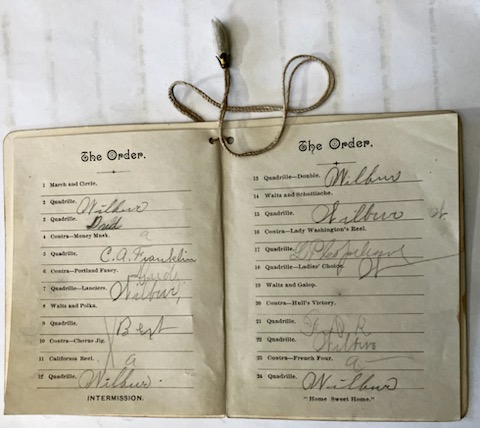 The Order.
1 March and Circle.
2 Quadrille. Wilbur
3 Quadrille. Dad
4 Contra—Money Musk. a
5 Quadrille. C.A. Franklin
6 Contra—Portland Fancy.
7 Quadrille—Lanciers. Wilbur
8 Waltz and Polka.
9 Quadrille. Bert
10 Contra—Chorus Jig.
11 California Reel. a
12 Quadrille. Wilbur.
INTERMISSION.
The Order.
13 Quadrille—Double. Wilbur
14 Waltz and Schottische.
15 Quadrille. Wilbur
16 Contra—Lady Washington's Reel.
17 Quadrille.
18 Quadrille—Ladies' Choice.
19 Waltz and Galop.
20 Contra—Hull's Victory.
21 Quadrille.
22 Quadrille. Wilbur
23 Contra—French Four. a
24 Quadrille. Wilbur
"Home Sweet Home."